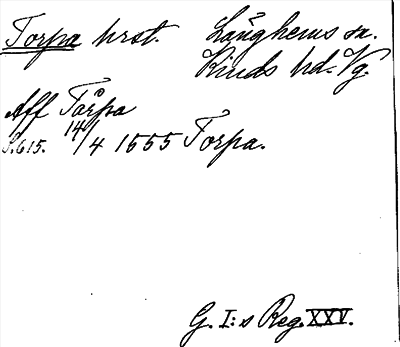 Torpa hrst. Länghems sn.
Kinds hd. Vg.
Aff Torpa
S. 615. 14/4 1555 Torpa.
G. I:s Reg. XXV.